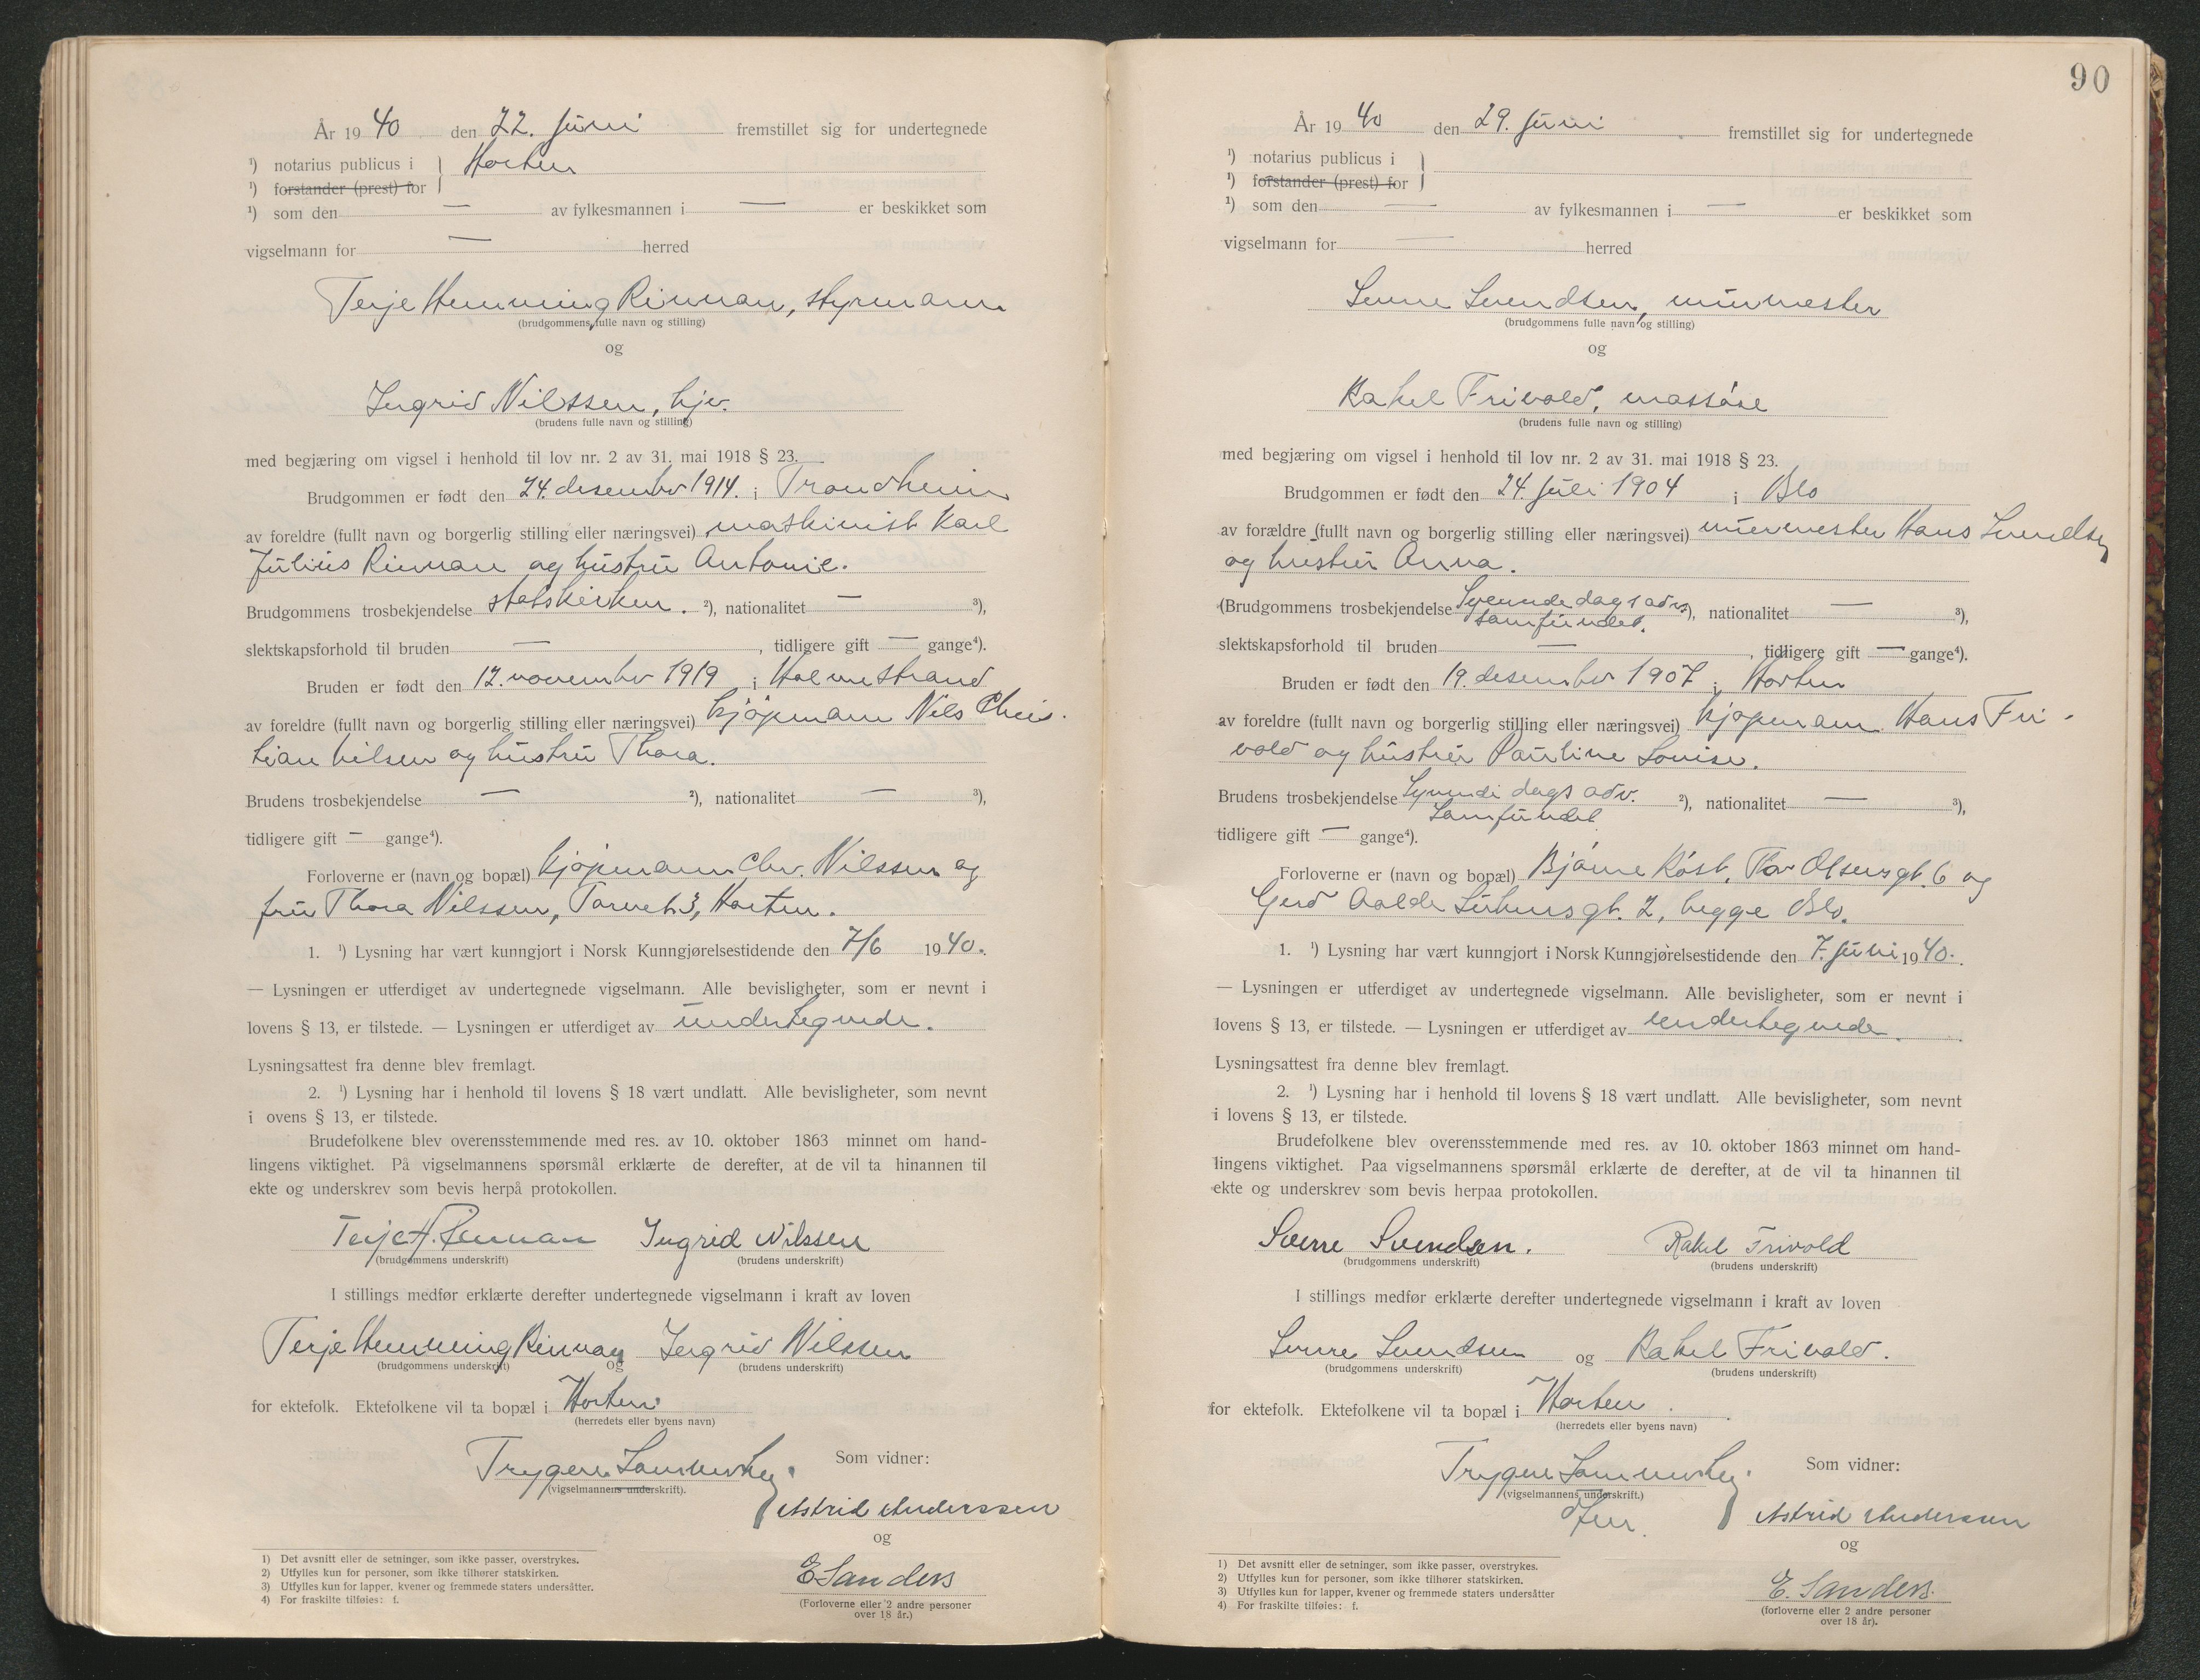 År 1940 den 22. Juni fremstillet sig for undertegnede
¹) notarius publicus i } Horten
¹) forstander (prest) for
¹) som den — av fylkesmannen i — er beskikket som
vigselmann for — herred
Terje Hemming Rinnan, styrmann
(brudgommens fulle navn og stilling)
og
Ingrid Nilssen, hjv.
(brudens fulle navn og stilling)
med begjæring om vigsel i henhold til lov nr. 2 av 31. mai 1918 § 23.
Brudgommen er født den 24. desember 1914. i Trondheim
av foreldre (fullt navn og borgerlig stilling eller næringsvei) maskinist Karl
Julius Rinnan og hustru Antonie.
Brudgommens trosbekjendelse statskirken. ²), nationalitet — ³),
slektskapsforhold til bruden —, tidligere gift — gange⁴).
Bruden er født den 12. november 1919 i Holmestrand
av foreldre (fullt navn og borgerlig stilling eller næringsvei) kjøpmann Nils Chris-
tian Nilsen og hustru Thora.
Brudens trosbekjendelse — ²), nationalitet — ³),
tidligere gift — gange⁴).
Forloverne er (navn og bopæl) kjøpmann Chr. Nilssen og
fru Thora Nilssen, Torvet 3, Horten.
1. ¹) Lysning har vært kunngjort i Norsk Kunngjørelsestidende den 7/6 1940.
— Lysningen er utferdiget av undertegnede vigselmann. Alle bevisligheter, som er nevnt i
lovens § 13, er tilstede. — Lysningen er utferdiget av undertegnede.
Lysningsattest fra denne blev fremlagt.
2. ¹) Lysning har i henhold til lovens § 18 vært undlatt. Alle bevisligheter, som nevnt
i ovens § 13, er tilstede.
Brudefolkene blev overensstemmende med res. av 10. oktober 1863 minnet om hand-
lingens viktighet. På vigselmannens spørsmål erklærte de derefter, at de vil ta hinannen til
ekte og underskrev som bevis herpå protokollen.
Terje H. Rinnan Ingrid Nilssen
(brudgommens underskrift) (brudens underskrift)
I stillings medfør erklærte derefter undertegnede vigselmann i kraft av loven
Terje Hemming Rinnan og Ingrid Nilssen
(brudgommens underskrift) (brudens underskrift)
for ektefolk. Ektefolkene vil ta bopæl i Horten.
(herredets eller byens navn)
Trygve
(vigselmannens underskrift).
Som vidner:
Astrid Anderssen
og
E Sanders
(Forloverne eller 2 andre personer
over 18 år.)
1) Det avsnitt eller de setninger, som ikke passer, overstrykes.
2) Utfylles kun for personer, som ikke tilhører statskirken.
3) Utfylles kun for lapper, kvener og fremmede staters undersåtter.
4) For fraskilte tilføies: f.
90
År 1940 den 29. Juni fremstillet sig for undertegnede
¹) notarius publicus i }
¹) forstander (prest) for
¹) som den — av fylkesmannen i — er beskikket som
vigselmann for — herred
Sverre Svendsen, murmester
(brudgommens fulle navn og stilling)
og
Rakel Frivold, massøse
(brudens fulle navn og stilling)
med begjæring om vigsel i henhold til lov nr. 2 av 31. mai 1918 § 23.
Brudgommen er født den 24. Juli 1904 i Oslo
av forældre (fullt navn og borgerlig stilling eller næringsvei) murmester Hans Svendsen
og hustru Anna.
(Brudgommens trosbekjendelse Syvende dags adv. ²), nationalitet — ³),
samfundet.
slektskapsforhold til bruden —, tidligere gift — gange⁴).
Bruden er født den 19. desember 1907 i Horten
av foreldre (fullt navn og borgerlig stilling eller næringsvei) kjøpmann Hans Fri-
vold og hustru Pauline Louise.
Brudens trosbekjendelse Syvende dags adv. ²), nationalitet — ³),
Samfundet
tidligere gift — gange⁴).
Forloverne er (navn og bopæl) Bjarne Røst, Thv Olsens gt. 6 og
Gerd gt. 2, begge Oslo.
1. ¹) Lysning har vært kunngjort i Norsk Kunngjørelsestidende den 7. Juni 1940.
— Lysningen er utferdiget av undertegnede vigselmann. Alle bevisligheter, som er nevnt i
lovens § 13, er tilstede. — Lysningen er utferdiget av undertegnede.
Lysningsattest fra denne blev fremlagt.
2. ¹) Lysning har i henhold til lovens § 18 vært undlatt. Alle bevisligheter, som nevnt
i lovens § 13, er tilstede.
Brudefolkene blev overensstemmende med res. av 10. oktober 1863 minnet om hand-
lingens viktighet. Paa vigselmannens spørsmål erklærte de derefter, at de vil ta hinannen til
ekte og underskrev som bevis herpaa protokollen.
Sverre Svendsen. Rakel Frivold
(brudgommens underskrift) (brudens underskrift)
I stillings medfør erklærte derefter undertegnede vigselmann i kraft av loven
Sverre Svendsen og Rakel Frivold.
(brudgommens underskrift) (brudens underskrift)
for ektefolk. Ektefolkene vil ta bopæl i Horten.
(herredets eller byens navn)
Trygve
(vigselmannens underskrift.)
Som vidner:
Astrid Anderssen
og
E. Sanders.
(forloverne eller 2 andre personer
over 18 år).
1) Det avsnitt eller de setninger, som ikke passer, overstrykes.
2) Utfylles kun for personer, som ikke tilhører statskirken.
3) Utfylles kun for lapper, kvener og fremmede staters undersåtter
4) For fraskilte tilføies: f.